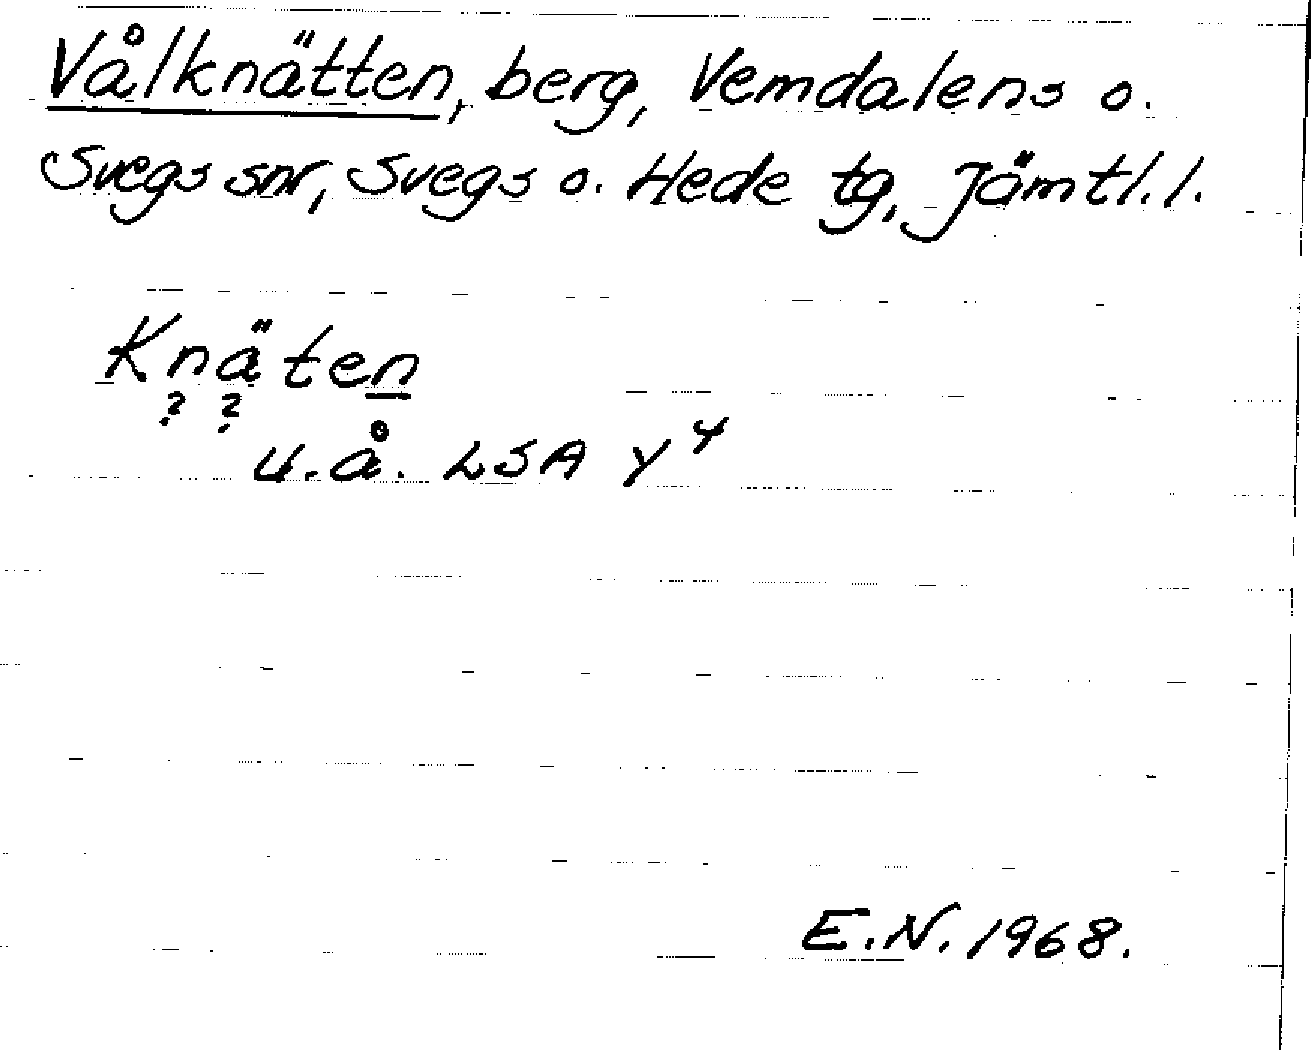 Vålknätten, berg, Vemdalens o.
Svegs snr, Svegs o. Hede tg, Jämtl. l.
Knäten
? ?
u.å. LSA Y4
E.N. 1968.